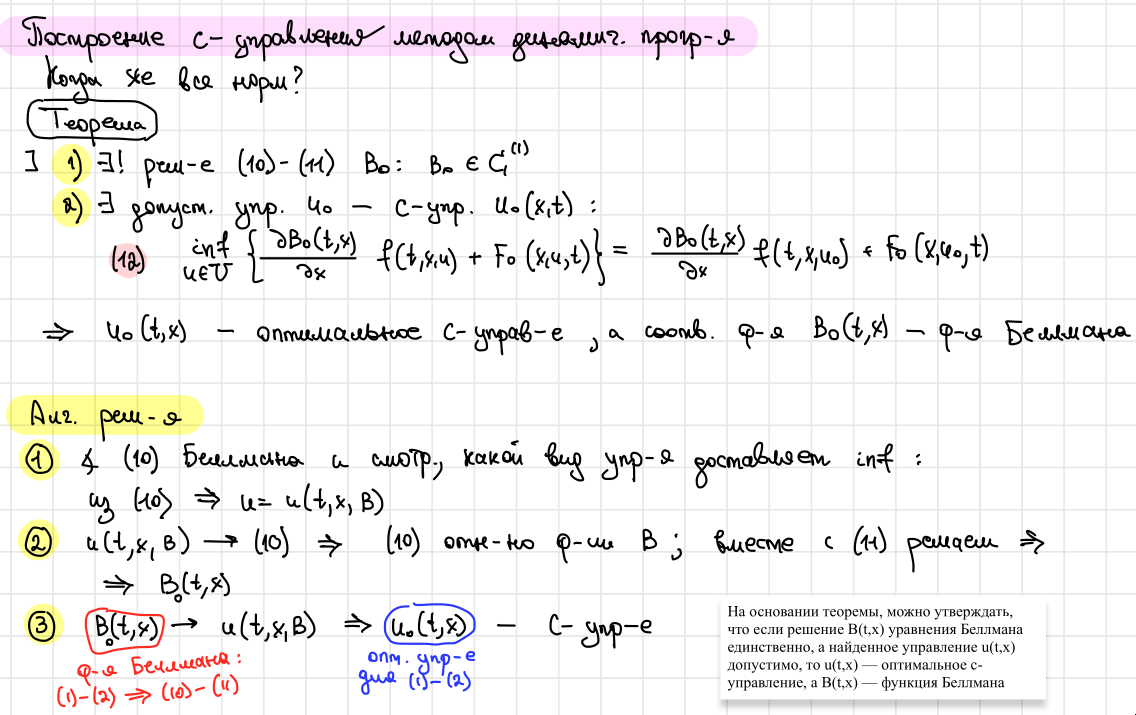 Построение с-управления методом динамич. прогр-я
Когда же все норм?
Теорема
] 1) ∃! реш-е (10)-(11) B₀: B₀ ∈ C₁⁽¹⁾
2) ∃ допуст. упр. u₀ — с-упр. u₀(x,t):
(12) inf u∈U { ∂B₀(t,x)/∂x f(t,x,u) + F₀(x,u,t) } = ∂B₀(t,x)/∂x f(t,x,u₀) + F₀(x,u₀,t)
⇒ u₀(t,x) — оптимальное с-управ-е, а соотв. ф-я B₀(t,x) — ф-я Беллмана
Алг. реш-я
① ∡ (10) Беллмана и смотр., какой вид упр-я доставляет inf:
из (10) ⇒ u = u(t,x,B)
② u(t,x,B) → (10) ⇒ (10) отн-но ф-ии B; вместе с (11) решаем ⇒
⇒ B₀(t,x)
③ B₀(t,x) → u(t,x,B) ⇒ u₀(t,x) — с-упр-е
ф-я Беллмана:
(1)-(2) ⇒ (10)-(11)
опт. упр-е
для (1)-(2)
На основании теоремы, можно утверждать,
что если решение B(t,x) уравнения Беллмана
единственно, а найденное управление u(t,x)
допустимо, то u(t,x) — оптимальное с-
управление, а B(t,x) — функция Беллмана